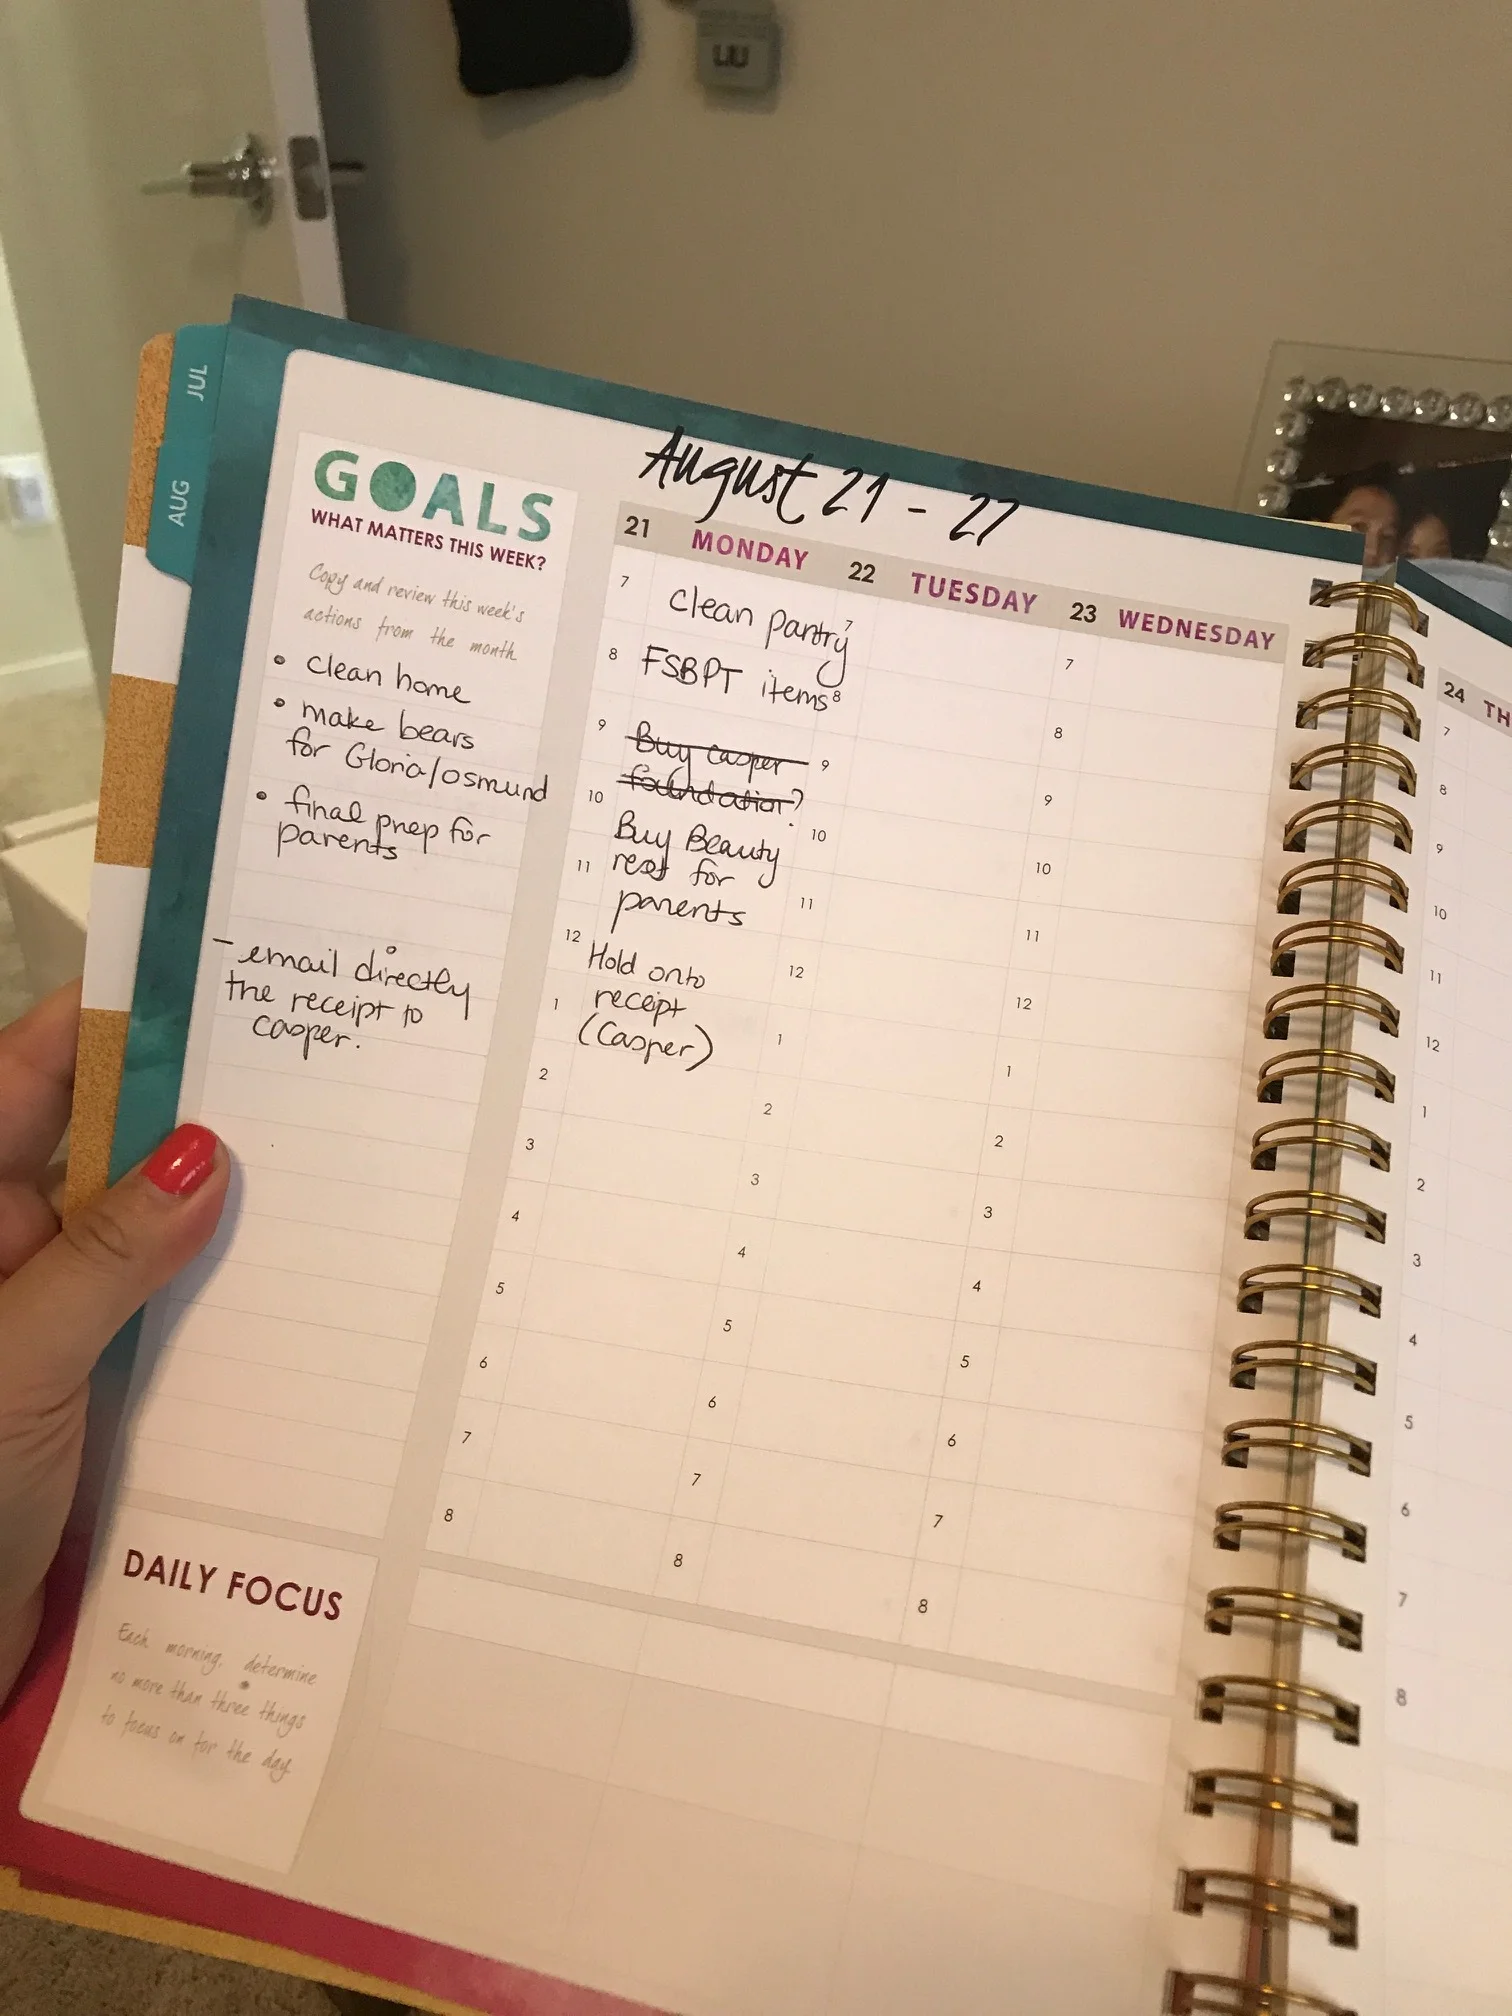 LIU
JUL
AUG
August 21 - 27
GOALS
WHAT MATTERS THIS WEEK?
Copy and review this week's
actions from the month
• clean home
• make bears
for Gloria/osmund
• final prep for
parents
- email directly
the receipt to
casper.
21 MONDAY
7 clean pantry
8 FSBPT items
9 Buy casper
foundation?
10 Buy Beauty
11 rest for
parents
12 Hold onto
1 receipt
(Casper)
2
3
4
5
6
7
8
22 TUESDAY
7
8
9
10
11
12
1
2
3
4
5
6
7
8
23 WEDNESDAY
7
8
9
10
11
12
1
2
3
4
5
6
7
8
24 TH
7
8
9
10
11
12
1
2
3
4
5
6
7
8
DAILY FOCUS
Each morning, determine
no more than three things
to focus on for the day